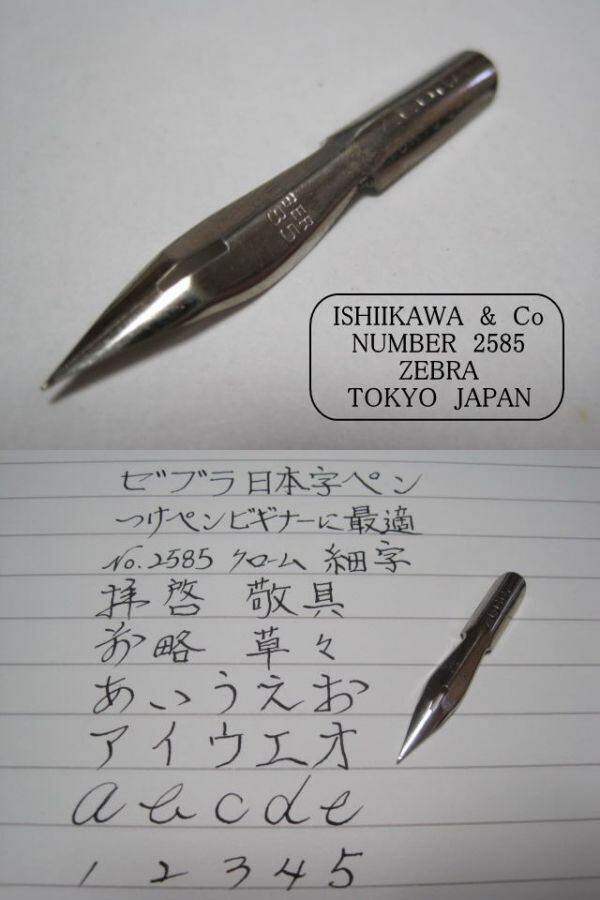 BER
85
ISHIIKAWA & Co
NUMBER 2585
ZEBRA
TOKYO JAPAN
ゼブラ日本字ペン
つけペンビギナーに最適
No.2585 クローム 細字
拝啓 敬具
前略 草々
あいうえお
アイウエオ
a b c d e
1 2 3 4 5